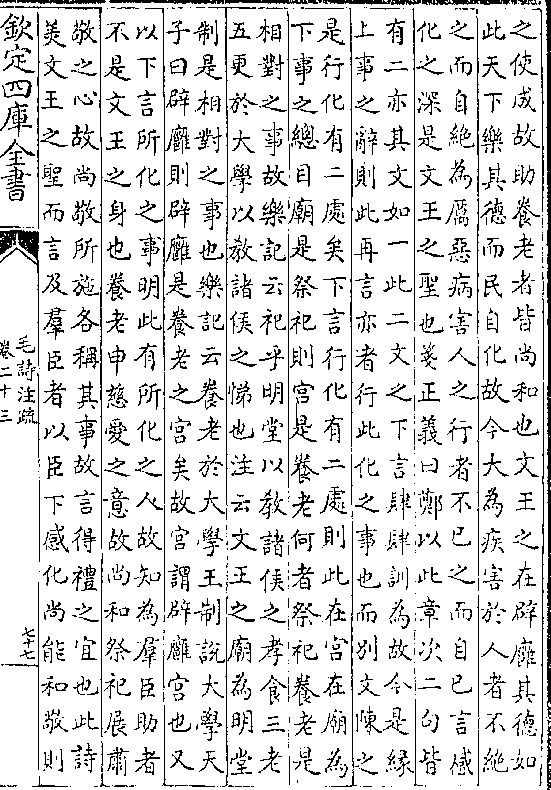 之使成故助養老者皆尚和也文王之在辟廱其德如
此天下樂其德而民自化故今大為疾害於人者不絶
之而自絶為厲惡病害人之行者不已之而自已言感
化之深是文王之聖也箋正義曰鄭以此章次二句皆
有二亦其文如一此二文之下言肆肆訓為故今是縁
上事之辭則此再言亦者行此化之事也而别文陳之
是行化有二處矣下言行化有二處則此在宫在廟為
下事之總目廟是祭祀則宫是養老何者祭祀養老是
相對之事故樂記云祀乎明堂以教諸侯之孝食三老
五更於大學以教諸侯之悌也注云文王之廟為明堂
制是相對之事也樂記云養老於大學王制說大學天
子曰辟廱則辟廱是養老之宫矣故宫謂辟廱宫也又
以下言所化之事明此有所化之人故知為羣臣助者
不是文王之身也養老申慈愛之意故尚和祭祀展肅
敬之心故尚敬所施各稱其事故言得禮之宜也此詩
美文王之聖而言及羣臣者以臣下感化尚能和敬則
欽定四庫全書
毛詩注疏
卷二十三
七十七